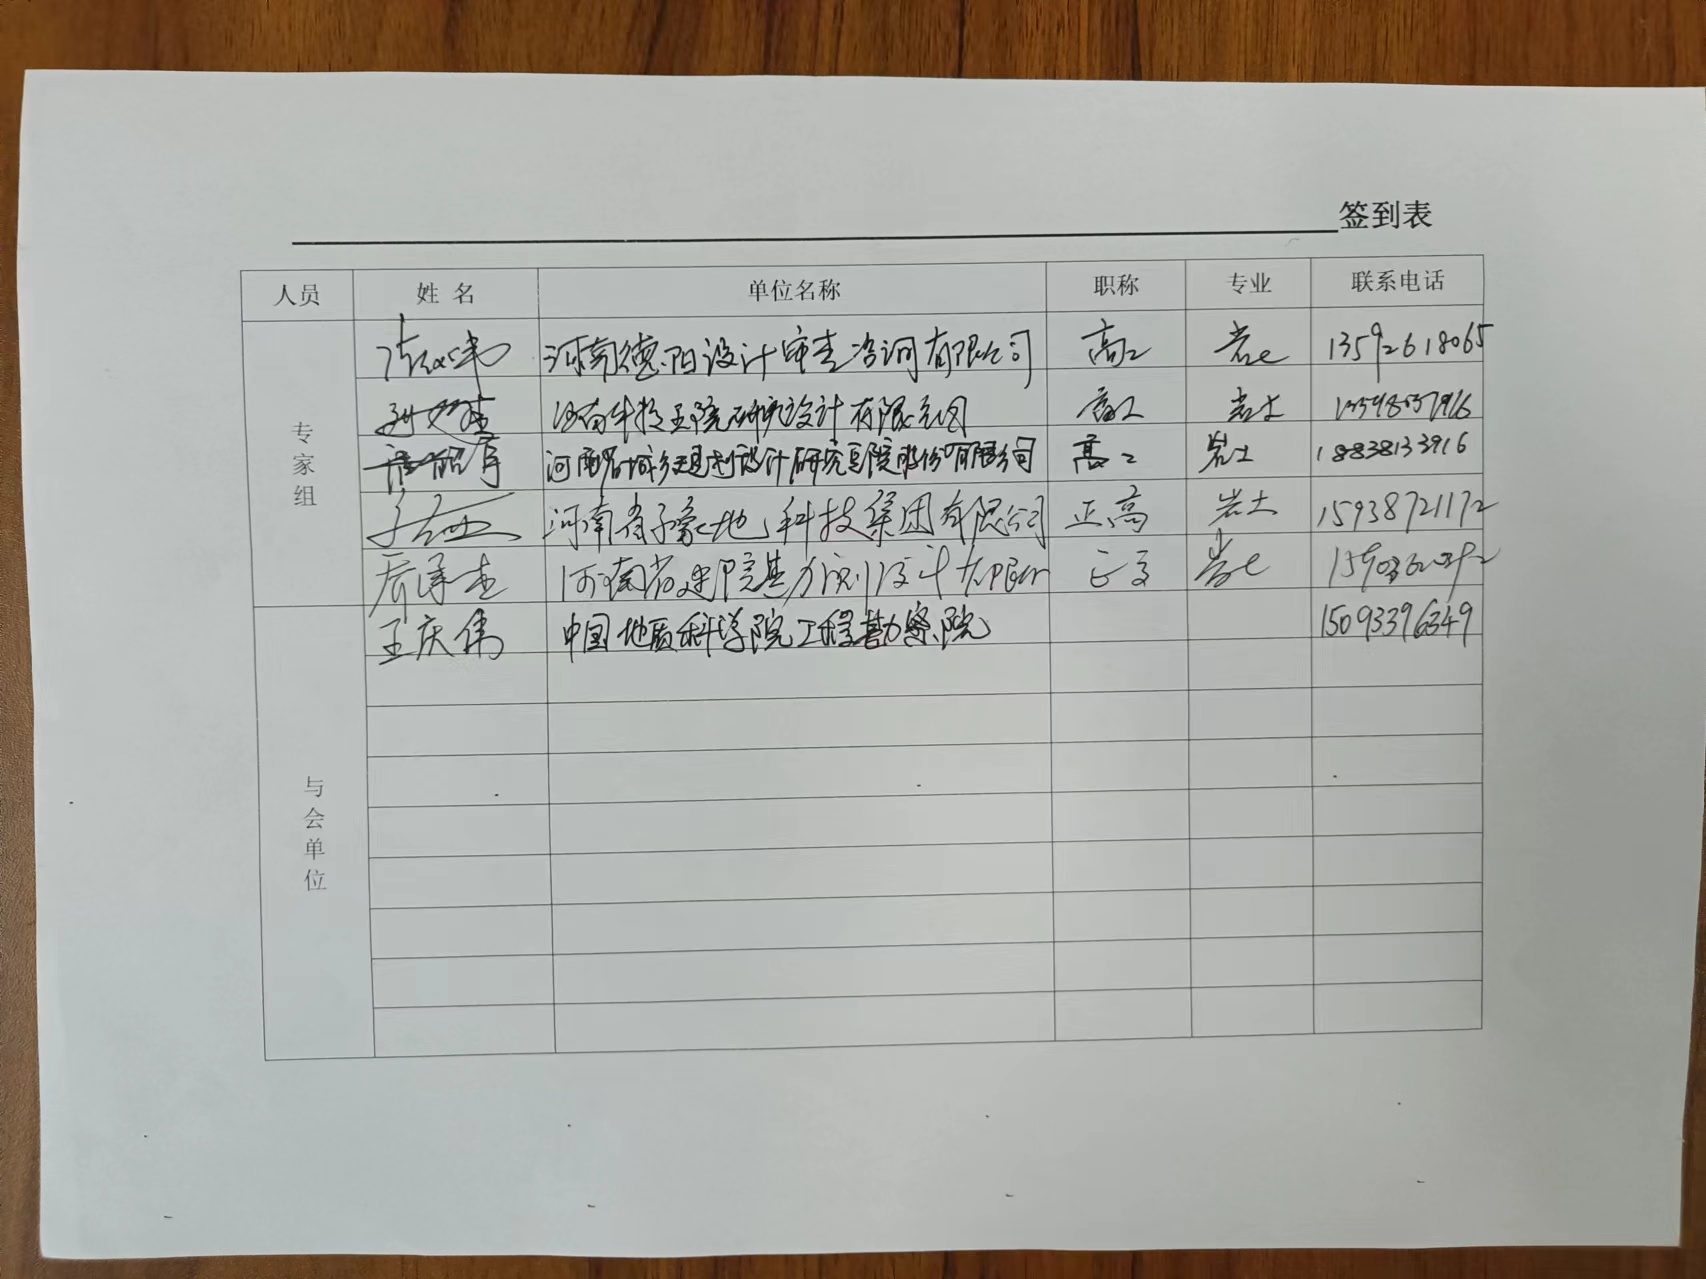 签到表
人员 姓名 单位名称 职称 专业 联系电话
专家组
河南德阳设计审查咨询有限公司 高工 岩土 13592618065
研究设计有限公司 高工 岩土
河南省城乡规划设计研究总院股份有限公司 高工 岩土 18838133916
河南省豫地科技集团有限公司 正高 岩土 15938721172
河南省建院基 设计有限公司 正高 岩土
与会单位
王庆伟 中国地质科学院工程勘察院 15093396349